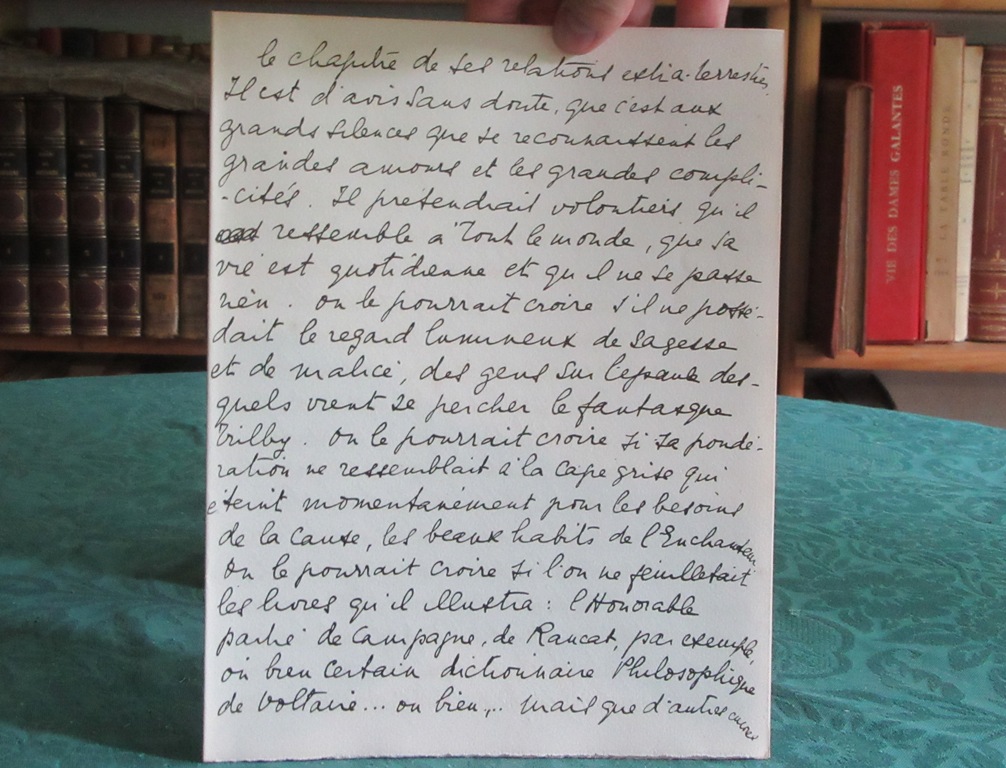 le chapitre de ses relations extra-terrestres,
Il est d'avis sans doute, que c'est aux
grands silences que se reconnaissent les
grandes amours et les grandes compli-
-cités. Il prétendrait volontiers, qu'il
ressemble à Tout le monde, que sa
vie est quotidienne et qu'il ne se passe
rien. On le pourrait croire s'il ne possé-
dait le regard lumineux de sagesse
et de malice, des gens sur l'epaule des-
quels vient se percher le fantasque
Trilby. On le pourrait croire si sa pondé-
ration ne ressemblait à la cape grise qui
éteint momentanément pour les besoins
de la cause, les beaux habits de l'Enchanteur
On le pourrait croire si l'on ne feuilletait
les livres qu'il illustra : l'Honorable
partie de Campagne, de Raucat, par exemple,
ou bien certain dictionnaire Philosophique
de Voltaire... ou bien... mais que d'autres encore
VIE DES DAMES GALANTES
LA TABLE RONDE